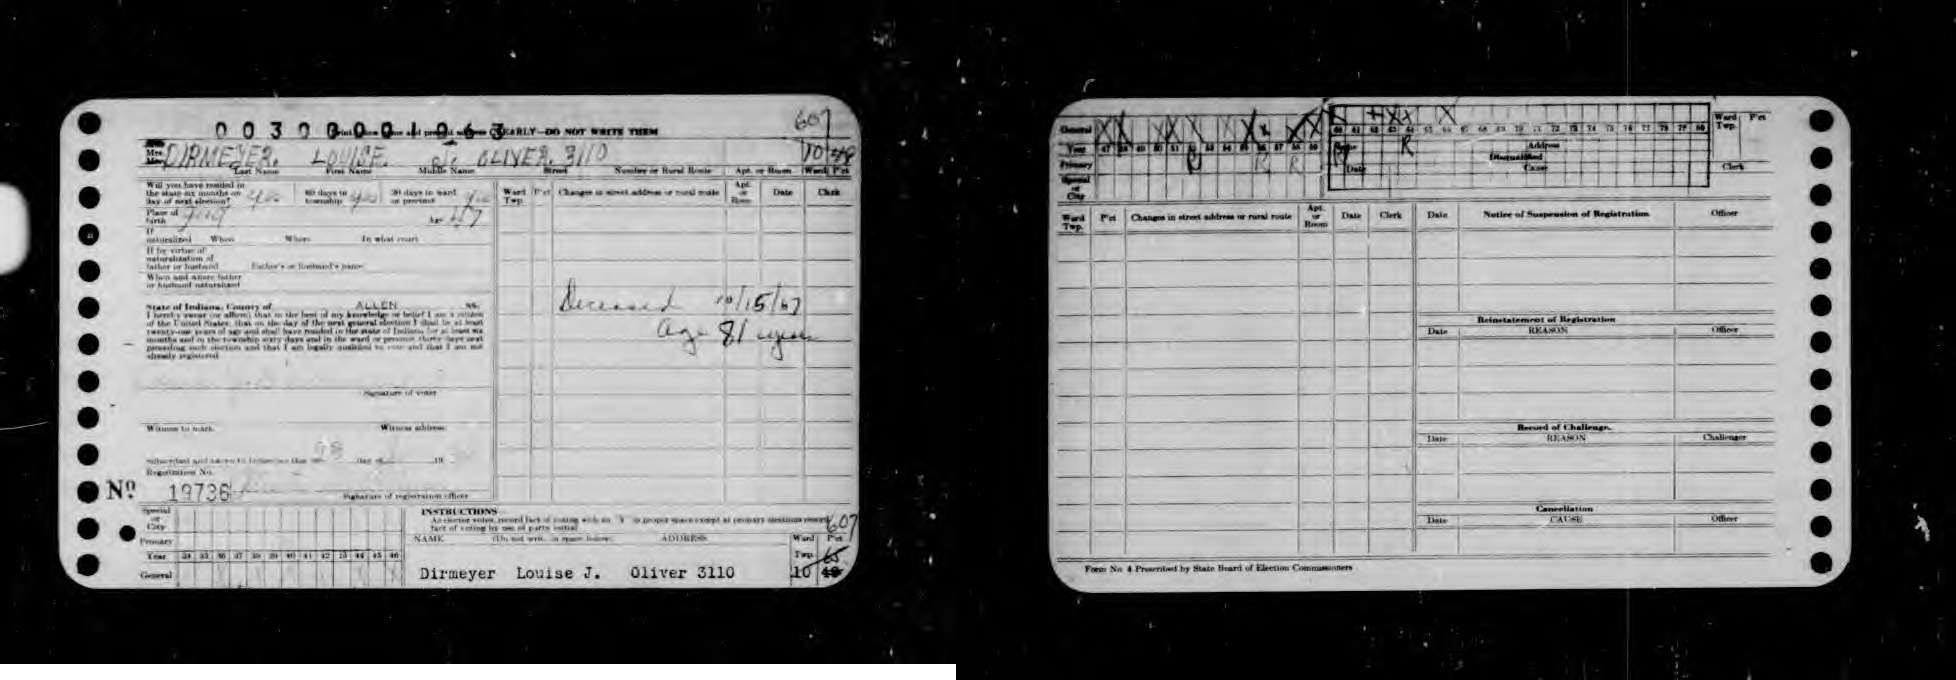 607
00300001063
Print name and present address CLEARLY—DO NOT WRITE THEM
Mrs. DIRMEYER, LOUISE. J. OLIVER. 3110 10
Last Name First Name Middle Name Street Number or Rural Route Apt. or Room Ward P'ct
Will you have resided in the state six months on day of next election? yes 60 days in township yes 30 days in ward or precinct yes
Place of birth Age
If naturalized When Where In what court
If by virtue of naturalization of father or husband Father's or husband's name
When and where father or husband naturalized
State of Indiana, County of ALLEN ss.
I hereby swear (or affirm) that to the best of my knowledge or belief I am a citizen
of the United States, that on the day of the next general election I shall be at least
twenty-one years of age and shall have resided in the state of Indiana for at least six
months and in the township sixty days and in the ward or precinct thirty days next
preceding such election and that I am legally qualified to vote and that I am not
already registered
Signature of voter
Witness to mark Witness address
Subscribed and sworn to before me this day of 19
Registration No.
No 19736
Signature of registration officer
Ward Twp. P'ct Changes in street address or rural route Apt. or Room Date Clerk
Deceased 10/15/67
Age 81 years
Special or City
Primary
Year 34 35 36 37 38 39 40 41 42 43 44 45 46
General
INSTRUCTIONS
As elector votes, record fact of voting with an "X" in proper space except at primary elections record
fact of voting by use of party initial
607
NAME (Do not write in space below) ADDRESS Ward Twp. P'ct
65
Dirmeyer Louise J. Oliver 3110 10 48
General X X X X X X X X X X X X X X X
Year 47 48 49 50 51 52 53 54 55 56 57 58 59 60 61 62 63 64 65 66 67 68 69 70 71 72 73 74 75 76 77 78 79 80
Primary R R R R R
Special or City
Name Address
Disqualified
Date Cause
Ward Twp. P'ct
Clerk
Ward Twp. P'ct Changes in street address or rural route Apt. or Room Date Clerk
Date Notice of Suspension of Registration Officer
Reinstatement of Registration
Date REASON Officer
Record of Challenge.
Date REASON Challenger
Cancellation
Date CAUSE Officer
Form No. 4 Prescribed by State Board of Election Commissioners